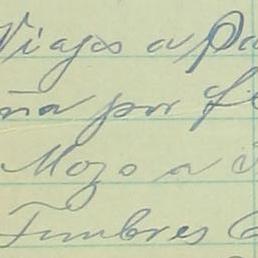 Viajes a Pa
ña por fe
Mozo a
Timbres